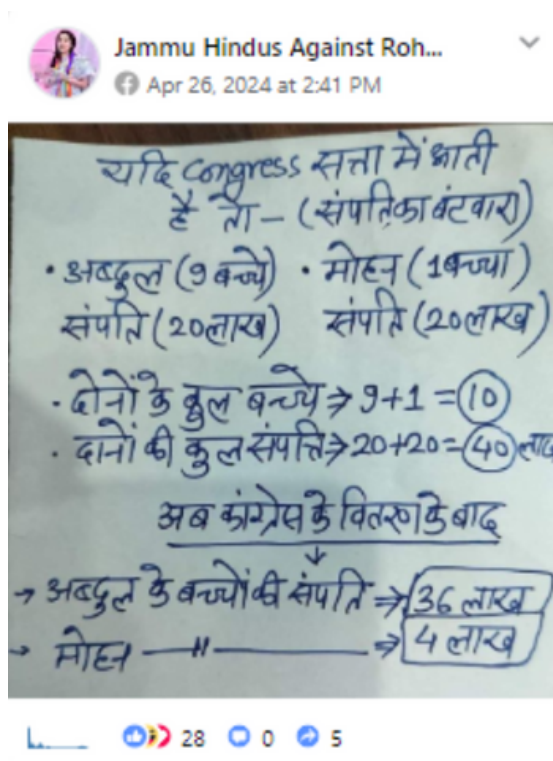 Jammu Hindus Against Roh...
Apr 26, 2024 at 2:41 PM
यदि Congress सत्ता में आती
है तो – (संपति का बंटवारा)
• अब्दुल (9 बच्चे) • मोहन (1 बच्चा)
संपति (20 लाख) संपति (20 लाख)
• दोनों के कुल बच्चे → 9+1 = 10
• दोनों की कुल संपत्ति → 20+20 = 40 लाख
अब कांग्रेस के वितरण के बाद
→ अब्दुल के बच्चों की संपति ⇒ 36 लाख
→ मोहन —〃— ⇒ 4 लाख
28 0 5